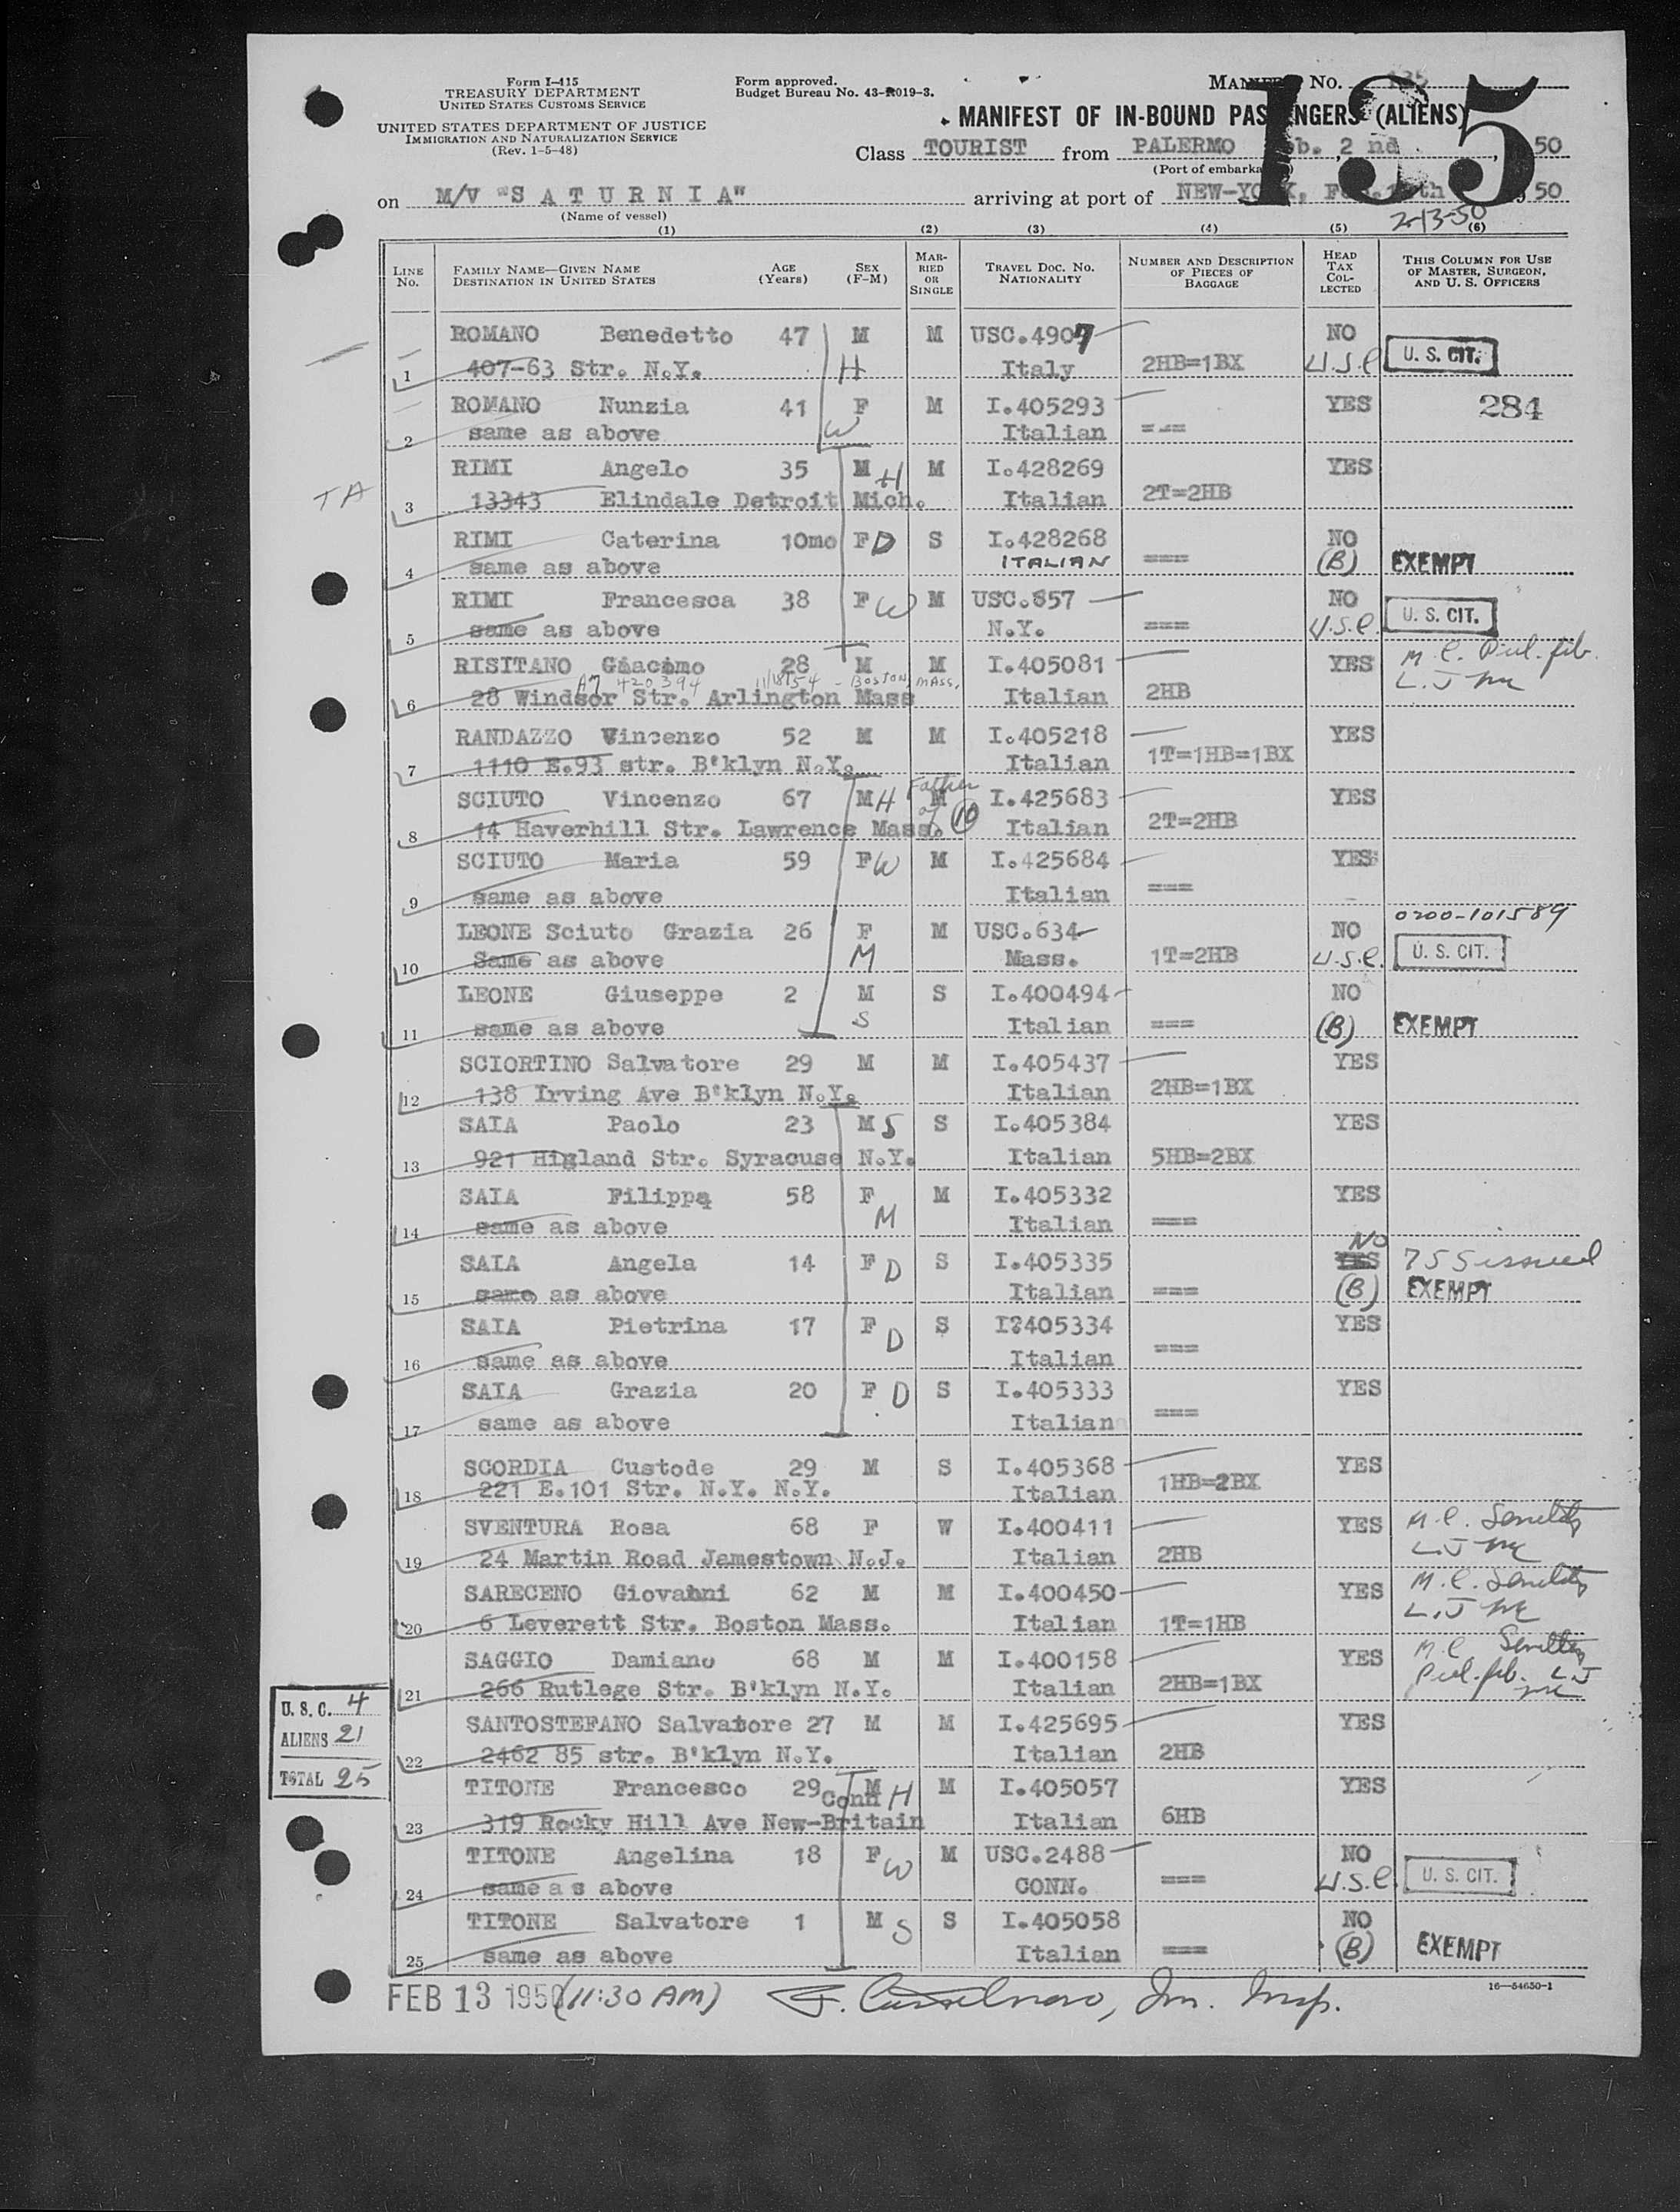 Form I-415
TREASURY DEPARTMENT
UNITED STATES CUSTOMS SERVICE
UNITED STATES DEPARTMENT OF JUSTICE
IMMIGRATION AND NATURALIZATION SERVICE
(Rev. 1-5-48)
Form approved.
Budget Bureau No. 43-R019-3.
MANIFEST No. 135
135
MANIFEST OF IN-BOUND PASSENGERS (ALIENS)
Class TOURIST from PALERMO Feb. 2 nd, 1950
(Port of embarkation)
on M/V "S A T U R N I A" arriving at port of NEW-YORK, Feb. th 1950
(Name of vessel)
2-13-50
(1) (2) (3) (4) (5) (6)
LINE No. FAMILY NAME—GIVEN NAME DESTINATION IN UNITED STATES AGE (Years) SEX (F-M) MARRIED OR SINGLE TRAVEL DOC. No. NATIONALITY NUMBER AND DESCRIPTION OF PIECES OF BAGGAGE HEAD TAX COLLECTED THIS COLUMN FOR USE OF MASTER, SURGEON, AND U. S. OFFICERS
ROMANO Benedetto 47 M M USC.4907 NO
1 407-63 Str. N.Y. H Italy 2HB=1BX U.S.C U. S. CIT.
ROMANO Nunzia 41 F M I.405293 YES 284
2 same as above W Italian =-=
RIMI Angelo 35 M H M I.428269 YES
TA 3 13343 Elindale Detroit Mich. Italian 2T=2HB
RIMI Caterina 10mo F D S I.428268 NO
4 same as above ITALIAN === (B) EXEMPT
RIMI Francesca 38 F W M USC.857 NO
5 same as above N.Y. === U.S.C. U. S. CIT.
RISITANO Giacomo 28 M M I.405081 YES M.C.
A7 420394 11/18/54 - BOSTON MASS. L.J
6 28 Windsor Str. Arlington Mass Italian 2HB
RANDAZZO Vincenzo 52 M M I.405218 YES
7 1110 E.93 str. B'klyn N.Y. Italian 1T=1HB=1BX
SCIUTO Vincenzo 67 M H M Father of (10) I.425683 YES
8 14 Haverhill Str. Lawrence Mass. Italian 2T=2HB
SCIUTO Maria 59 F W M I.425684 YES
9 same as above Italian ===
0200-101589
LEONE Sciuto Grazia 26 F M USC.634 NO
10 Same as above M Mass. 1T=2HB U.S.C. U. S. CIT.
LEONE Giuseppe 2 M S I.400494 NO
11 same as above S Italian === (B) EXEMPT
SCIORTINO Salvatore 29 M M I.405437 YES
12 138 Irving Ave B'klyn N.Y. Italian 2HB=1BX
SAIA Paolo 23 M S S I.405384 YES
13 921 Higland Str. Syracuse N.Y. Italian 5HB=2BX
SAIA Filippa 58 F M I.405332 YES
14 same as above M Italian ===
SAIA Angela 14 F D S I.405335 YES NO 755 issued
15 same as above Italian === (B) EXEMPT
SAIA Pietrina 17 F D S I?405334 YES
16 same as above Italian ===
SAIA Grazia 20 F D S I.405333 YES
17 same as above Italian ===
SCORDIA Custode 29 M S I.405368 YES
18 221 E.101 Str. N.Y. N.Y. Italian 1HB=2BX
SVENTURA Rosa 68 F W I.400411 YES M.C. Senility
19 24 Martin Road Jamestown N.J. Italian 2HB L.J
SARECENO Giovanni 62 M M I.400450 YES M.C. Senility
20 6 Leverett Str. Boston Mass. Italian 1T=1HB L.J
SAGGIO Damiano 68 M M I.400158 YES M.C Senility
21 266 Rutlege Str. B'klyn N.Y. Italian 2HB=1BX L.J
SANTOSTEFANO Salvatore 27 M M I.425695 YES
22 2462 85 str. B'klyn N.Y. Italian 2HB
TITONE Francesco 29 M H M I.405057 YES
23 319 Rocky Hill Ave New-Britain Conn Italian 6HB
TITONE Angelina 18 F W M USC.2488 NO
24 same as above CONN. === U.S.C. U. S. CIT.
TITONE Salvatore 1 M S S I.405058 NO
25 same as above Italian === (B) EXEMPT
U. S. C. 4
ALIENS 21
TOTAL 25
FEB 13 1950 (11:30 AM) Im. Insp.
16—54650-1